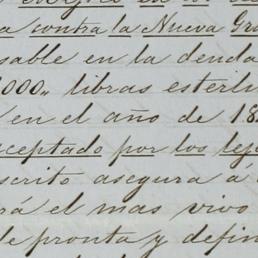 a contra la Nueva Gra
sable en la deuda
000,, libras esterli
en el año de 18
ceptado por los le
scrito asegura a
rá el mas vivo
de pronta y defin